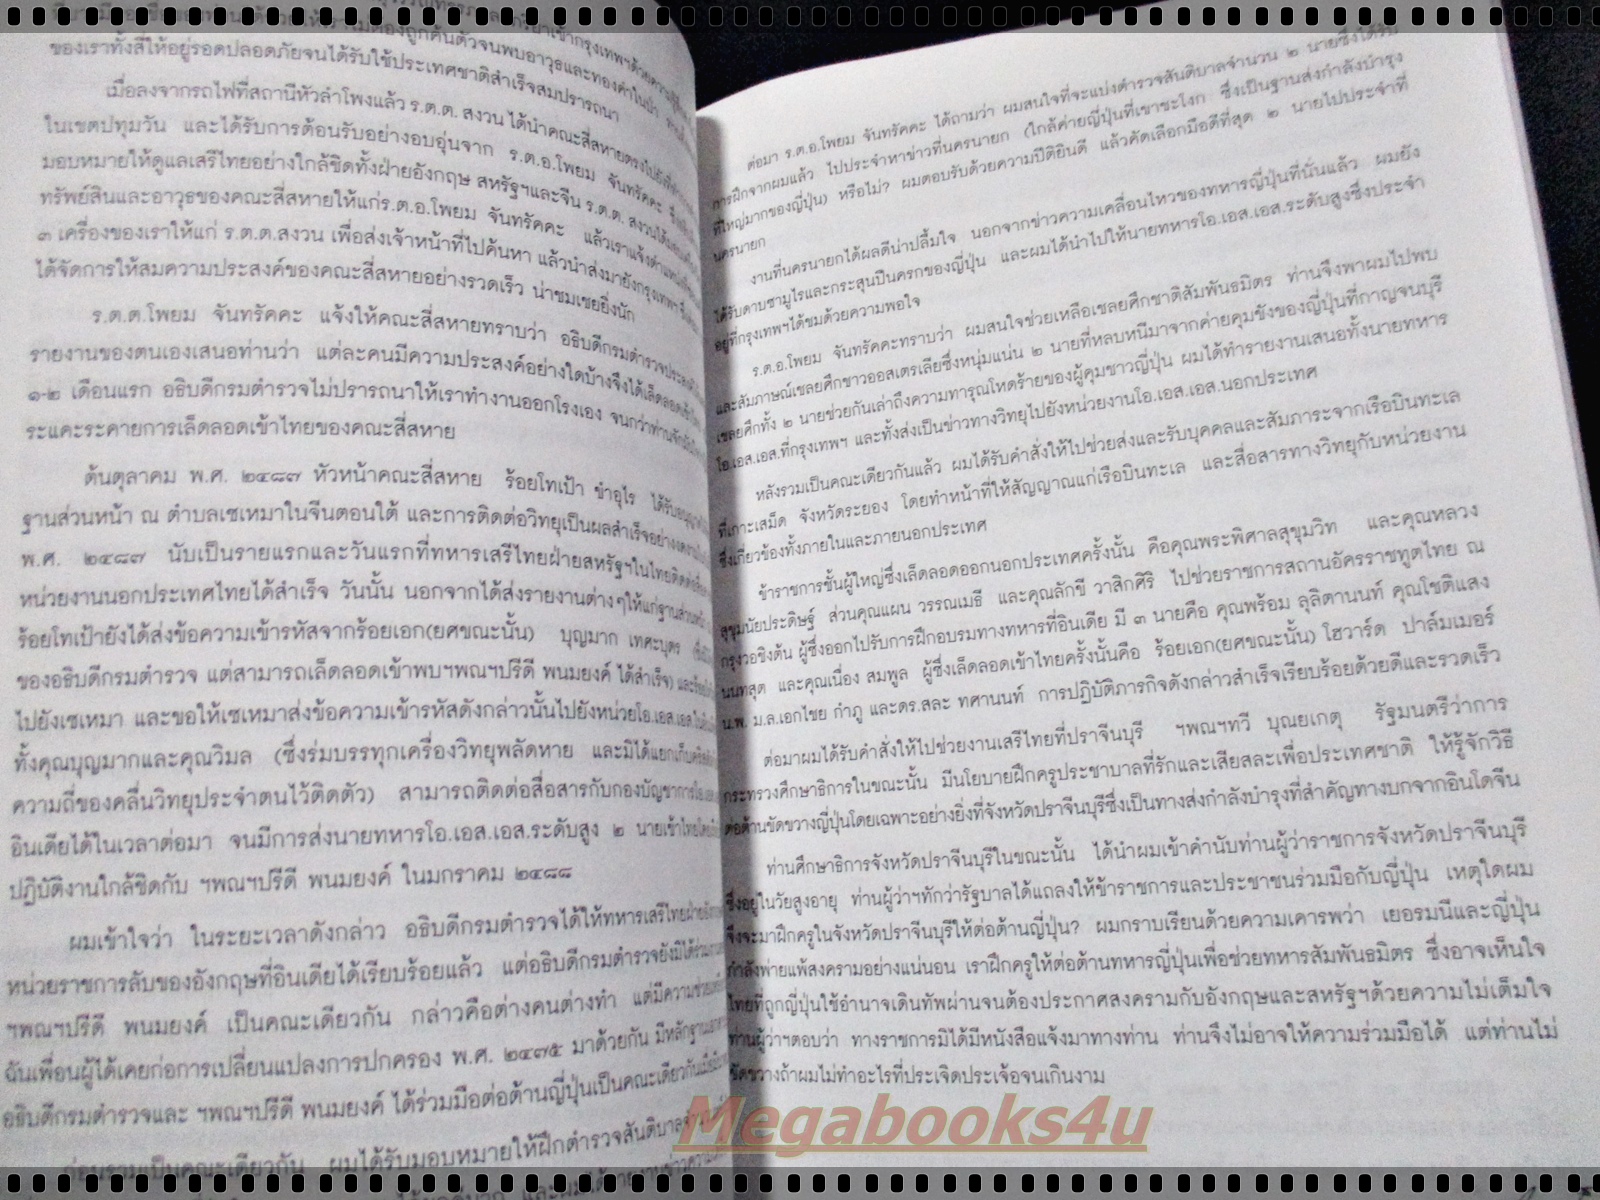 ของเราทั้งสี่ให้อยู่รอดปลอดภัยจนได้รับใช้ประเทศชาติสำเร็จสมปรารถนา
เมื่อลงจากรถไฟที่สถานีหัวลำโพงแล้ว ร.ต.ต. สงวน ได้นำคณะสี่สหายตรงไปยัง
ในเขตปทุมวัน และได้รับการต้อนรับอย่างอบอุ่นจาก ร.ต.อ.โพยม จันทรัคคะ
มอบหมายให้ดูแลเสรีไทยอย่างใกล้ชิดทั้งฝ่ายอังกฤษ สหรัฐฯและจีน ร.ต.ต. สงวนได้
ทรัพย์สินและอาวุธของคณะสี่สหายให้แก่ร.ต.อ.โพยม จันทรัคคะ แล้วเราแจ้ง
๓ เครื่องของเราให้แก่ ร.ต.ต.สงวน เพื่อส่งเจ้าหน้าที่ไปค้นหา แล้วนำส่งมายังกรุงเทพฯ
ได้จัดการให้สมความประสงค์ของคณะสี่สหายอย่างรวดเร็ว น่าชมเชยยิ่งนัก
ร.ต.ต.โพยม จันทรัคคะ แจ้งให้คณะสี่สหายทราบว่า อธิบดีกรมตำรวจประสงค์
รายงานของตนเองเสนอท่านว่า แต่ละคนมีความประสงค์อย่างใดบ้างจึงได้เล็ดลอด
๑-๒ เดือนแรก อธิบดีกรมตำรวจไม่ปรารถนาให้เราทำงานออกโรงเอง จนกว่าท่าน
ระแคะระคายการเล็ดลอดเข้าไทยของคณะสี่สหาย
ต้นตุลาคม พ.ศ. ๒๔๘๗ หัวหน้าคณะสี่สหาย ร้อยโทเป้า ขำอุไร ได้รับ
ฐานส่วนหน้า ณ ตำบลเซเหมาในจีนตอนใต้ และการติดต่อวิทยุเป็นผลสำเร็จอย่าง
พ.ศ. ๒๔๘๗ นับเป็นรายแรกและวันแรกที่ทหารเสรีไทยฝ่ายสหรัฐฯในไทยติดต่อ
หน่วยงานนอกประเทศไทยได้สำเร็จ วันนั้น นอกจากได้ส่งรายงานต่างๆให้แก่ฐานส่วนหน้า
ร้อยโทเป้ายังได้ส่งข้อความเข้ารหัสจากร้อยเอก(ยศขณะนั้น) บุญมาก เทศะบุตร
ของอธิบดีกรมตำรวจ แต่สามารถเล็ดลอดเข้าพบฯพณฯปรีดี พนมยงค์ ได้สำเร็จ)
ไปยังเซเหมา และขอให้เซเหมาส่งข้อความเข้ารหัสดังกล่าวนั้นไปยังหน่วยโอ.เอส.เอส
ทั้งคุณบุญมากและคุณวิมล (ซึ่งร่มบรรทุกเครื่องวิทยุพลัดหาย และมิได้แยกเก็บ
ความถี่ของคลื่นวิทยุประจำตนไว้ติดตัว) สามารถติดต่อสื่อสารกับกองบัญชาการ
อินเดียได้ในเวลาต่อมา จนมีการส่งนายทหารโอ.เอส.เอส.ระดับสูง ๒ นายเข้าไทย
ปฏิบัติงานใกล้ชิดกับ ฯพณฯปรีดี พนมยงค์ ในมกราคม ๒๔๘๘
ผมเข้าใจว่า ในระยะเวลาดังกล่าว อธิบดีกรมตำรวจได้ให้ทหารเสรีไทย
หน่วยราชการลับของอังกฤษที่อินเดียได้เรียบร้อยแล้ว แต่อธิบดีกรมตำรวจยังมิได้
ฯพณฯปรีดี พนมยงค์ เป็นคณะเดียวกัน กล่าวคือต่างคนต่างทำ แต่มีความ
ฉันเพื่อนผู้ได้เคยก่อการเปลี่ยนแปลงการปกครอง พ.ศ. ๒๔๗๕ มาด้วยกัน มีหลักฐาน
อธิบดีกรมตำรวจและ ฯพณฯปรีดี พนมยงค์ ได้ร่วมมือต่อต้านญี่ปุ่นเป็นคณะเดียวกัน
ก่อนรวมเป็นคณะเดียวกัน ผมได้รับมอบหมายให้ฝึกตำรวจสันติบาล
ต่อมา ร.ต.อ.โพยม จันทรัคคะ ได้ถามว่า ผมสนใจที่จะแบ่งตำรวจสันติบาลจำนวน ๒ นายซึ่งได้รับ
การฝึกจากผมแล้ว ไปประจำหาข่าวที่นครนายก (ใกล้ค่ายญี่ปุ่นที่เขาชะโงก ซึ่งเป็นฐานส่งกำลังบำรุง
ที่ใหญ่มากของญี่ปุ่น) หรือไม่? ผมตอบรับด้วยความปีติยินดี แล้วคัดเลือกมือดีที่สุด ๒ นายไปประจำที่
นครนายก
งานที่นครนายกได้ผลดีน่าปลื้มใจ นอกจากข่าวความเคลื่อนไหวของทหารญี่ปุ่นที่นั่นแล้ว ผมยัง
ได้รับดาบซามูไรและกระสุนปืนครกของญี่ปุ่น และผมได้นำไปให้นายทหารโอ.เอส.เอส.ระดับสูงซึ่งประจำ
อยู่ที่กรุงเทพฯได้ชมด้วยความพอใจ
ร.ต.อ.โพยม จันทรัคคะทราบว่า ผมสนใจช่วยเหลือเชลยศึกชาติสัมพันธมิตร ท่านจึงพาผมไปพบ
และสัมภาษณ์เชลยศึกชาวออสเตรเลียซึ่งหนุ่มแน่น ๒ นายที่หลบหนีมาจากค่ายคุมขังของญี่ปุ่นที่กาญจนบุรี
เชลยศึกทั้ง ๒ นายช่วยกันเล่าถึงความทารุณโหดร้ายของผู้คุมชาวญี่ปุ่น ผมได้ทำรายงานเสนอทั้งนายทหาร
โอ.เอส.เอส.ที่กรุงเทพฯ และทั้งส่งเป็นข่าวทางวิทยุไปยังหน่วยงานโอ.เอส.เอส.นอกประเทศ
หลังรวมเป็นคณะเดียวกันแล้ว ผมได้รับคำสั่งให้ไปช่วยส่งและรับบุคคลและสัมภาระจากเรือบินทะเล
ที่เกาะเสม็ด จังหวัดระยอง โดยทำหน้าที่ให้สัญญาณแก่เรือบินทะเล และสื่อสารทางวิทยุกับหน่วยงาน
ซึ่งเกี่ยวข้องทั้งภายในและภายนอกประเทศ
ข้าราชการชั้นผู้ใหญ่ซึ่งเล็ดลอดออกนอกประเทศครั้งนั้น คือคุณพระพิศาลสุขุมวิท และคุณหลวง
สุขุมนัยประดิษฐ์ ส่วนคุณแผน วรรณเมธี และคุณลักขี วาสิกศิริ ไปช่วยราชการสถานอัครราชทูตไทย ณ
กรุงวอชิงตัน ผู้ซึ่งออกไปรับการฝึกอบรมทางทหารที่อินเดีย มี ๓ นายคือ คุณพร้อม ลุลิตานนท์ คุณโชติแสง
นนทสุต และคุณเนื่อง สมพูล ผู้ซึ่งเล็ดลอดเข้าไทยครั้งนั้นคือ ร้อยเอก(ยศขณะนั้น) โฮวาร์ด ปาล์มเมอร์
น.พ. ม.ล.เอกไชย กำภู และดร.สละ ทศานนท์ การปฏิบัติภารกิจดังกล่าวสำเร็จเรียบร้อยด้วยดีและรวดเร็ว
ต่อมาผมได้รับคำสั่งให้ไปช่วยงานเสรีไทยที่ปราจีนบุรี ฯพณฯทวี บุณยเกตุ รัฐมนตรีว่าการ
กระทรวงศึกษาธิการในขณะนั้น มีนโยบายฝึกครูประชาบาลที่รักและเสียสละเพื่อประเทศชาติ ให้รู้จักวิธี
ต่อต้านขัดขวางญี่ปุ่นโดยเฉพาะอย่างยิ่งที่จังหวัดปราจีนบุรีซึ่งเป็นทางส่งกำลังบำรุงที่สำคัญทางบกจากอินโดจีน
ท่านศึกษาธิการจังหวัดปราจีนบุรีในขณะนั้น ได้นำผมเข้าคำนับท่านผู้ว่าราชการจังหวัดปราจีนบุรี
ซึ่งอยู่ในวัยสูงอายุ ท่านผู้ว่าฯทักว่ารัฐบาลได้แถลงให้ข้าราชการและประชาชนร่วมมือกับญี่ปุ่น เหตุใดผม
จึงจะมาฝึกครูในจังหวัดปราจีนบุรีให้ต่อต้านญี่ปุ่น? ผมกราบเรียนด้วยความเคารพว่า เยอรมนีและญี่ปุ่น
กำลังพ่ายแพ้สงครามอย่างแน่นอน เราฝึกครูให้ต่อต้านทหารญี่ปุ่นเพื่อช่วยทหารสัมพันธมิตร ซึ่งอาจเห็นใจ
ไทยที่ถูกญี่ปุ่นใช้อำนาจเดินทัพผ่านจนต้องประกาศสงครามกับอังกฤษและสหรัฐฯด้วยความไม่เต็มใจ
ท่านผู้ว่าฯตอบว่า ทางราชการมิได้มีหนังสือแจ้งมาทางท่าน ท่านจึงไม่อาจให้ความร่วมมือได้ แต่ท่านไม่
ขัดขวางถ้าผมไม่ทำอะไรที่ประเจิดประเจ้อจนเกินงาม
Megabooks4u